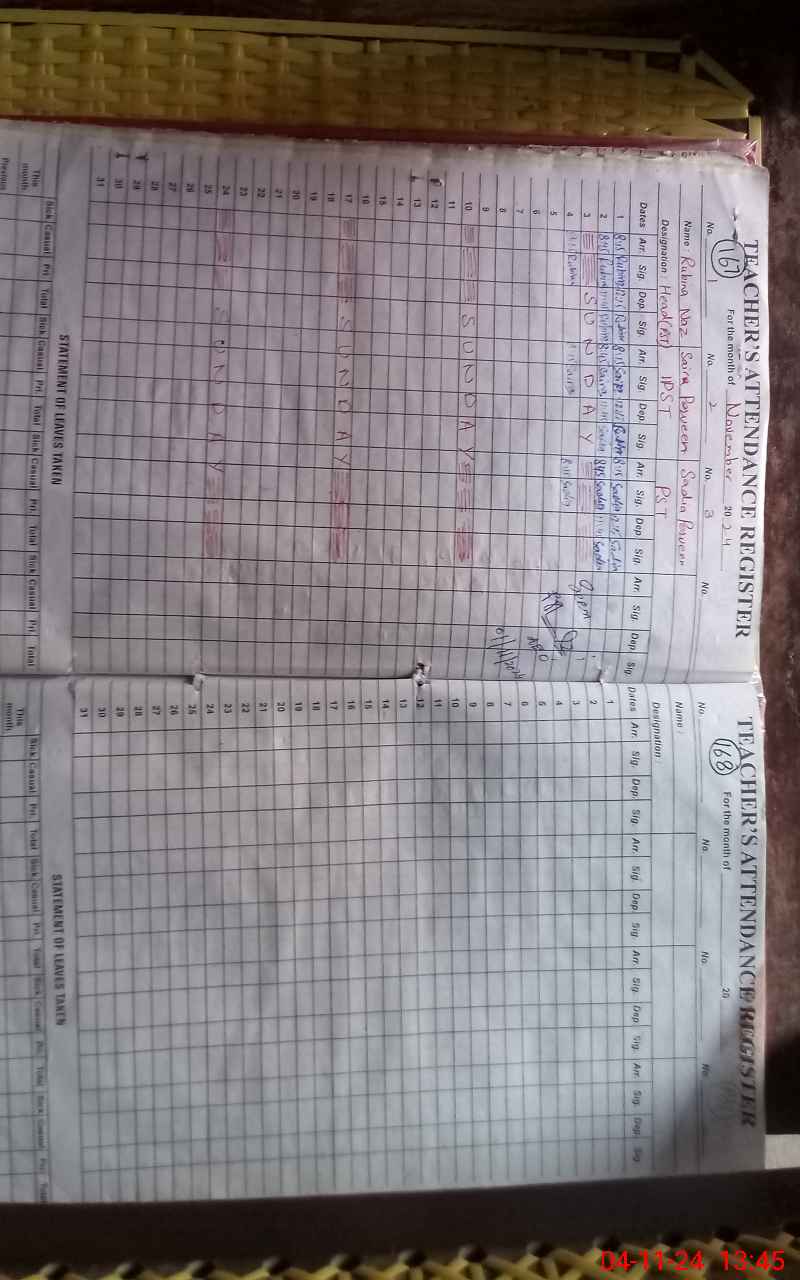 TEACHER'S ATTENDANCE REGISTER
(167) For the month of November 2024
No. 1 No. 2 No. 3 No.
Name: Rubina Naz Saira Parveen Sadia Parveen
Designation: Head(PST) PST PST
Dates Arr. Sig. Dep. Sig. Arr. Sig. Dep. Sig. Arr. Sig. Dep. Sig. Arr. Sig. Dep. Sig.
1 8:15 Rubina 8:15 Saira 8:15 Sadia Sadia
2 8:15 Rubina Rubina 8:15 Saira Saira 8:15 Sadia Sadia
3 SUNDAY
4 Rubina Saira 8:15 Sadia
5
6
7
8
9
10 SUNDAY
11
12
13
14
15
16
17 SUNDAY
18
19
20
21
22
23
24 SUNDAY
25
26
27
28
29
30
31
01/11/2024
STATEMENT OF LEAVES TAKEN
Sick Casual Pri. Total Sick Casual Pri. Total Sick Casual Pri. Total Sick Casual Pri. Total
This month
Previous
TEACHER'S ATTENDANCE REGISTER
(168) For the month of 20
No. No. No. No.
Name:
Designation:
Dates Arr. Sig. Dep. Sig. Arr. Sig. Dep. Sig. Arr. Sig. Dep. Sig. Arr. Sig. Dep. Sig.
1
2
3
4
5
6
7
8
9
10
11
12
13
14
15
16
17
18
19
20
21
22
23
24
25
26
27
28
29
30
31
STATEMENT OF LEAVES TAKEN
Sick Casual Pri. Total Sick Casual Pri. Total Sick Casual Pri. Total Sick Casual Pri. Total
This month
04-11-24 13:45